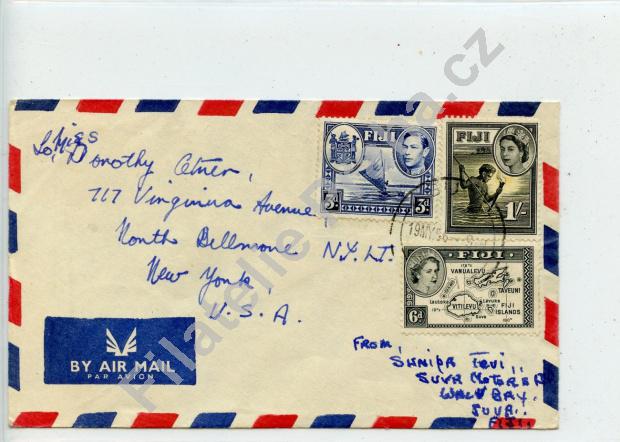 Miss
To, Dorothy Otner,
717 Virginia Avenue
North Bellmore N.Y. L.I.
New York,
U. S. A.
FIJI
3d 3d
FIJI
1/-
19 MY 56
FIJI
178°E
VANUALEVU
TAVEUNI
Lautoka
VITILEVU
Levuka
FIJI
ISLANDS
Suva
180°
6d
BY AIR MAIL
PAR AVION
FROM,
SUVA MOTORS
WALU BAY,
SUVA,
FIJI.
Filatelie .cz